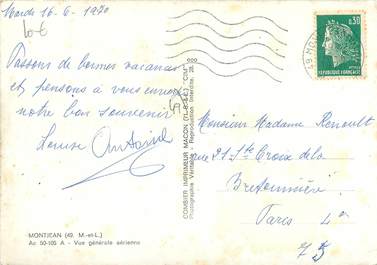 Mardi 16-6-1970
10-E
Passons de bonnes vacances
et pensons à vous envoyer
notre bon souvenir
Louise Antoine
49
MONTJEAN (49. M.-et-L.)
Ac 50-105 A - Vue générale aérienne
COMBIER IMPRIMEUR MACON (71-S.-&-L.) "CIM"
Photographie Véritable - Reproduction Interdite
0,30
REPUBLIQUE FRANÇAISE
49 MON
Monsieur Madame Renoult
rue 21 Ste Croix de la
Bretonnière
Paris 4e
75